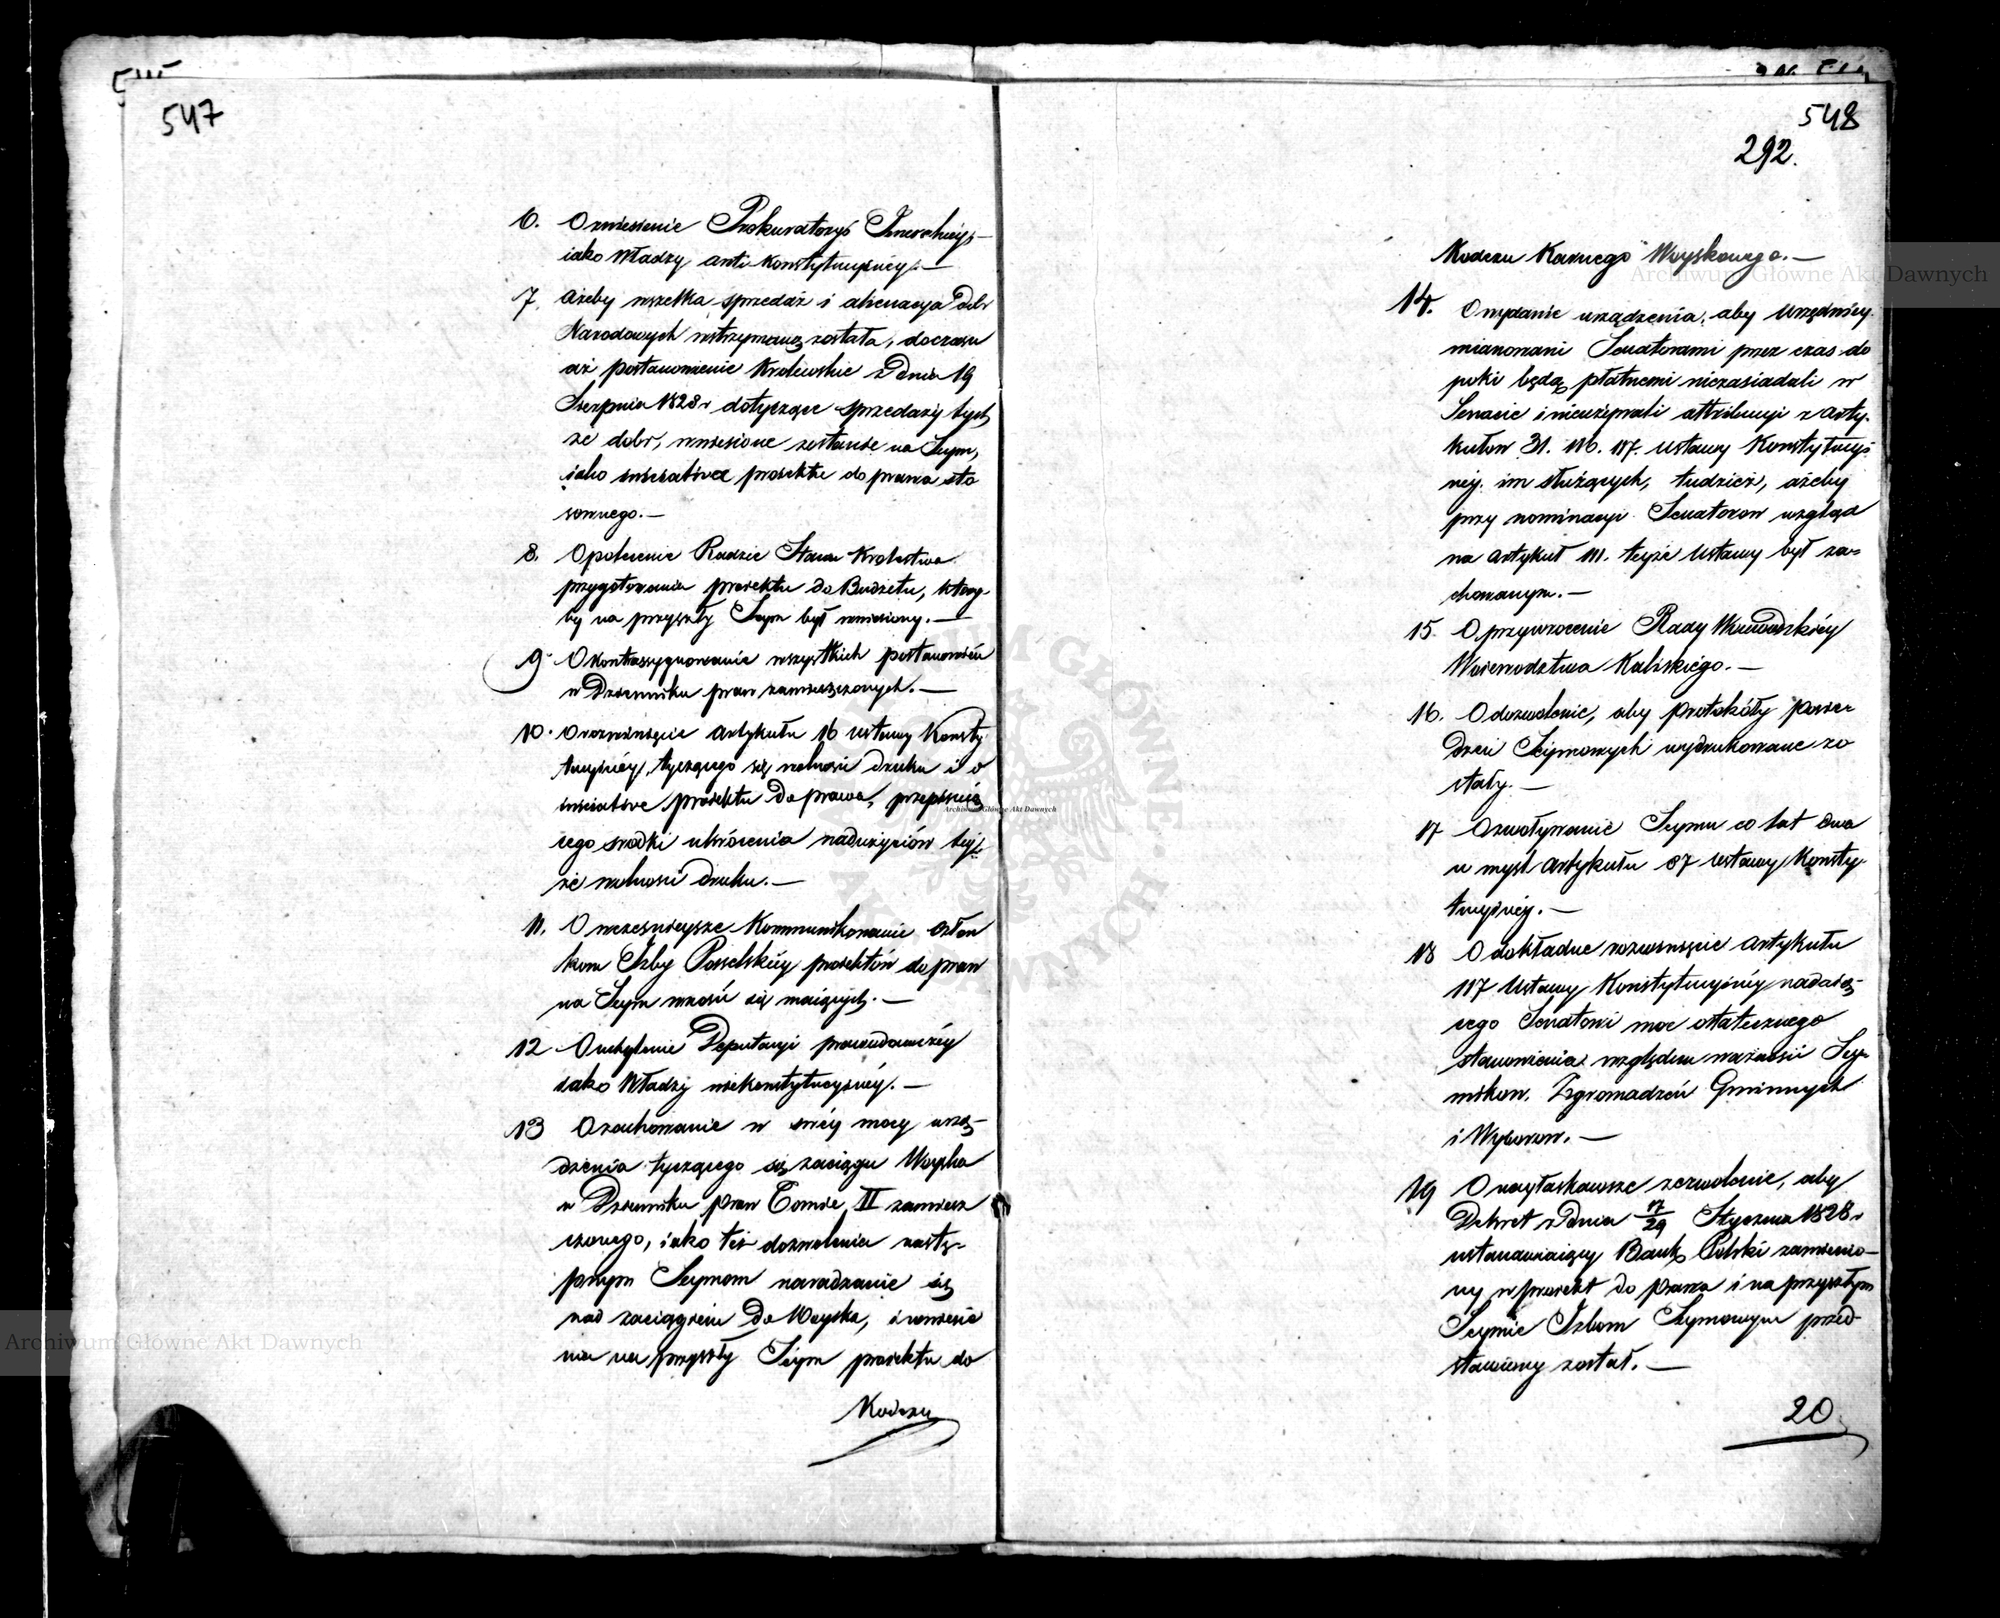 547
6. O zniesienie Prokuratoryi Jeneralnéy,
iako Władzy anti-konstytucyinéy. —
7. Ażeby wszelka sprzedaż i alienacya Dóbr
Narodowych wstrzymaną została, do czasu
aż postanowienie Królewskie z Dnia 19
Sierpnia 1828 r dotyczące sprzedaży tych
że dóbr, wniesione zostanie na Seym,
iako iniciativa proiektu do prawa sto
sownego. —
8. O polecenie Radzie Stanu Królestwa
przygotowania proiektu do Budżetu, który-
by na przyszły Seym był wniesiony. —
9. O kontrassygnowanie wszystkich postanowień
w Dzienniku praw zamieszczonych. —
10. O rozwinięcie artykułu 16 ustawy Konsty-
tucyinéy, tyczącego się wolności druku i o
iniciative proiektu do prawa, przepisuią
cego srodki ukrócenia nadużyciów téy-
że wolności druku. —
11. O wcześnieysze Kommunikowanie człon
kom Izby Poselskiéy proiektów do praw
na Seym wnosić się maiących. —
12 O uchylenie Deputacyi prawodawczéy
iako Władzy niekonstytucyinéy. —
13 O zachowanie w swéy mocy urzą-
dzenia tyczącego się zaciągu Woyska
w Dzienniku praw Tomie II zamiesz
czonego, iako téż dozwolenia nastę-
pnym Seymom naradzanie się
nad zaciągiem do Woyska, i wniesie
nia na przyszły Seym proiektu do
Kodexu
548
292.
Kodexu Karnego Woyskowego. —
14. O wydanie urządzenia, aby Urzędnicy
mianowani Senatorami przez czas do
póki będą płatnemi niezasiadali w
Senacie i nieużywali attribucyi z arty-
kułow 31. 116. 117. Ustawy Konstytucyi-
néy. im służących, tudzież, ażeby
przy nominacyi Senatorow wzgląd
na artykuł 111. teyże Ustawy był za-
chowanym. —
15. O przywrocenie Rady Woiewodzkiéy
Woiewodztwa Kaliskiégo. —
16. O dozwolenie, aby protokóły posie-
dzeń Seymowych wydrukowane zo
stały. —
17 O zwoływanie Seymu co lat dwa
w mysl artykułu 87 ustawy Konsty-
tucyinéy. —
18 O dokładne rozwinięcie artykułu
117 Ustawy Konstytucyinéy nadaią-
cego Senatowi moc ostatecznego
stanowienia względem ważności Sey-
mikow, Zgromadzeń Gminnych
i Wyborow. —
19 O nayłaskawsze zezwolenie, aby
Dekret z Dnia 17/29 Stycznia 1828 r
ustanawiaiący Bank Polski zamienio-
ny w proiekt do prawa i na przyszłym
Seymie Izbom Seymowym przed-
stawiony został. —
20.
Archiwum Główne Akt Dawnych
Archiwum Główne Akt Dawnych
Archiwum Główne Akt Dawnych